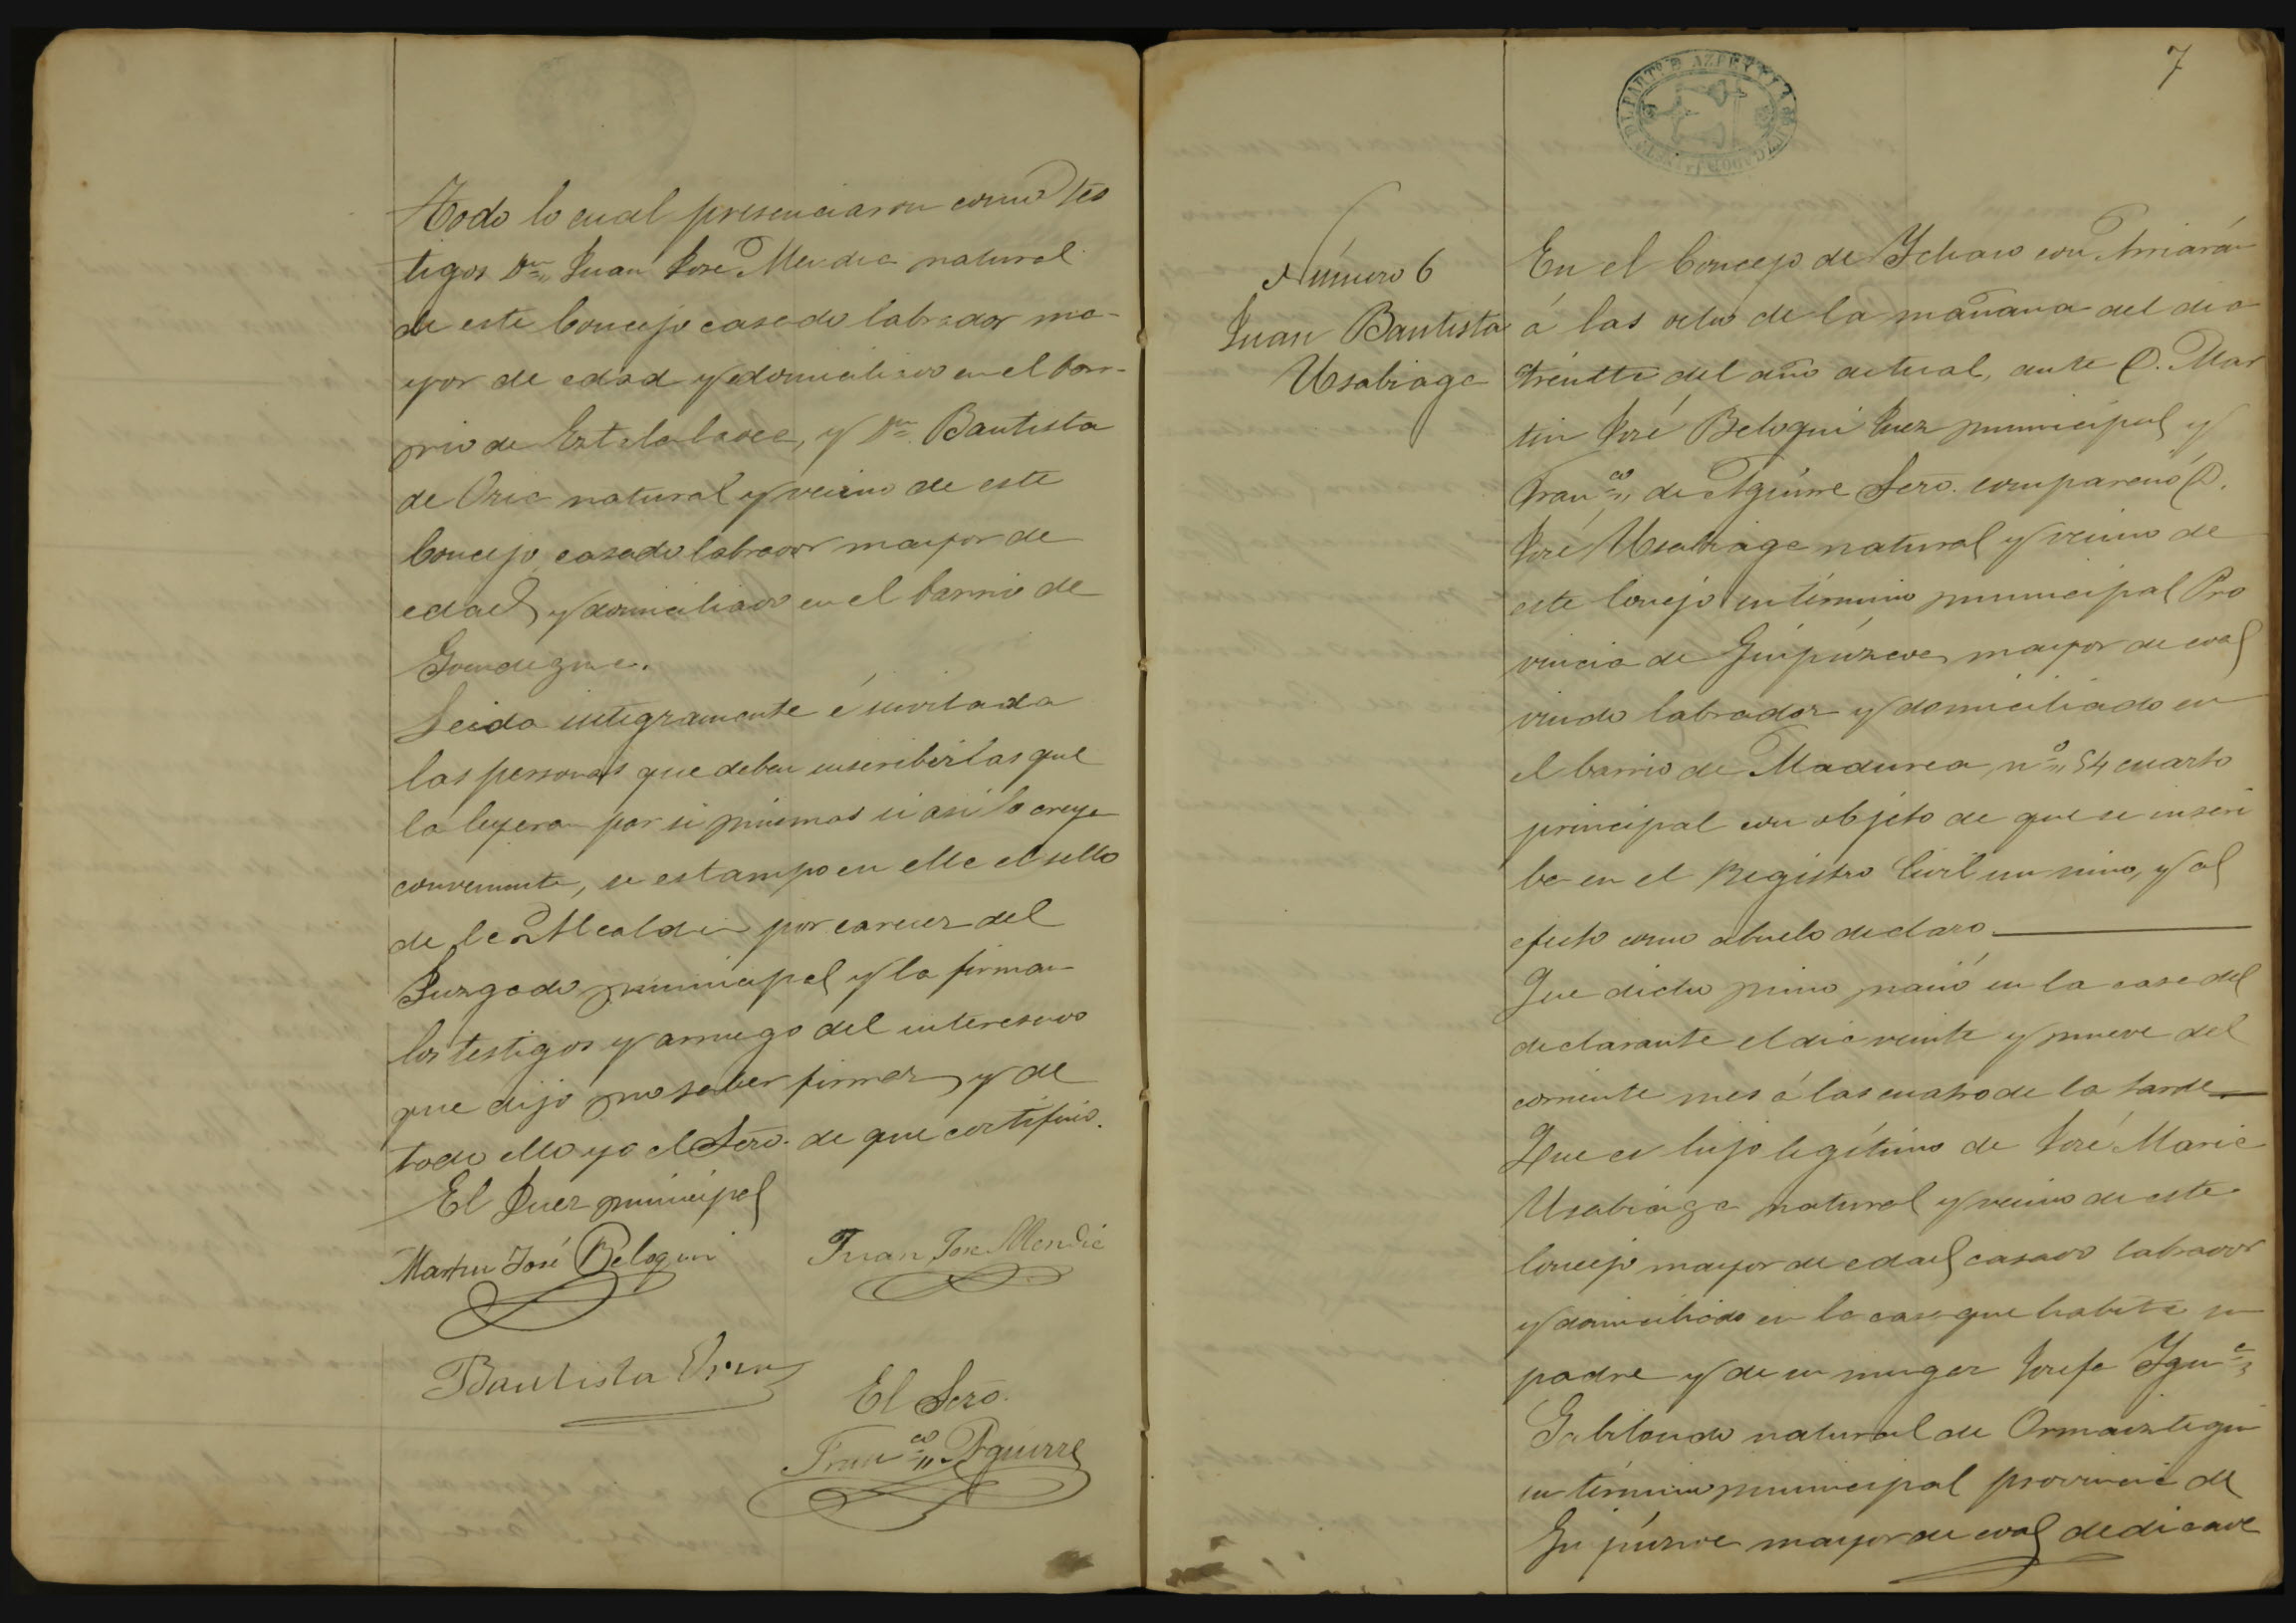 Todo lo cual presenciaron como tes
tigos Dn Juan José Mendia natural
de este Concejo casado labrador ma-
yor de edad y domiciliado en el bar-
rio de y Dn Bautista
de Oria natural y vecino de este
Concejo, casado labrador mayor de
edad y domiciliado en el barrio de
Leida integramente é invitada
las personas que deben suscribirlas que
la leyeran por si mismas si asi lo creye
conveniente, se estampo en ella el sello
de la Alcaldia por carecer del
Juzgado municipal y la firman
los testigos y a ruego del interesado
que dijo no saber firmar, y de
todo ello yo el Scro. de que certifico.
El Juez municipal
Martin José Beloqui
Juan Jose Mendia
Bautista Oria
El Scro.
Franco Aguirre
7
PARTº DE AZPEYTIA
Número 6
Juan Bautista
Usabiaga
En el Concejo de Ichaso con Arriarán
á las ocho de la mañana del dia
treinta del año actual, ante D. Mar
tin José Beloqui Juez municipal y
Franco de Aguirre Scro. compareció D.
José Usabiaga natural y vecino de
este Concejo su término municipal Pro
vincia de Guipúzcoa mayor de edad
viudo labrador y domiciliado en
el barrio de Madurea, nº 54 cuarto
principal con objeto de que se inscri
ba en el Registro Civil un nino, y al
efecto como abuelo declaro
Que dicho nino nació en la casa del
declarante el dia veinte y nueve del
corriente mes á las cuatro de la tarde
Que es hijo legítimo de José Maria
Usabiaga natural y vecino de este
Concejo mayor de edad casado labrador
y domiciliado en la casa que habita su
padre y de su muger Josefa Igna
Gabilondo natural de Ormaiztegui
su término municipal provincia de
Guipúzcoa mayor de edad dedicada